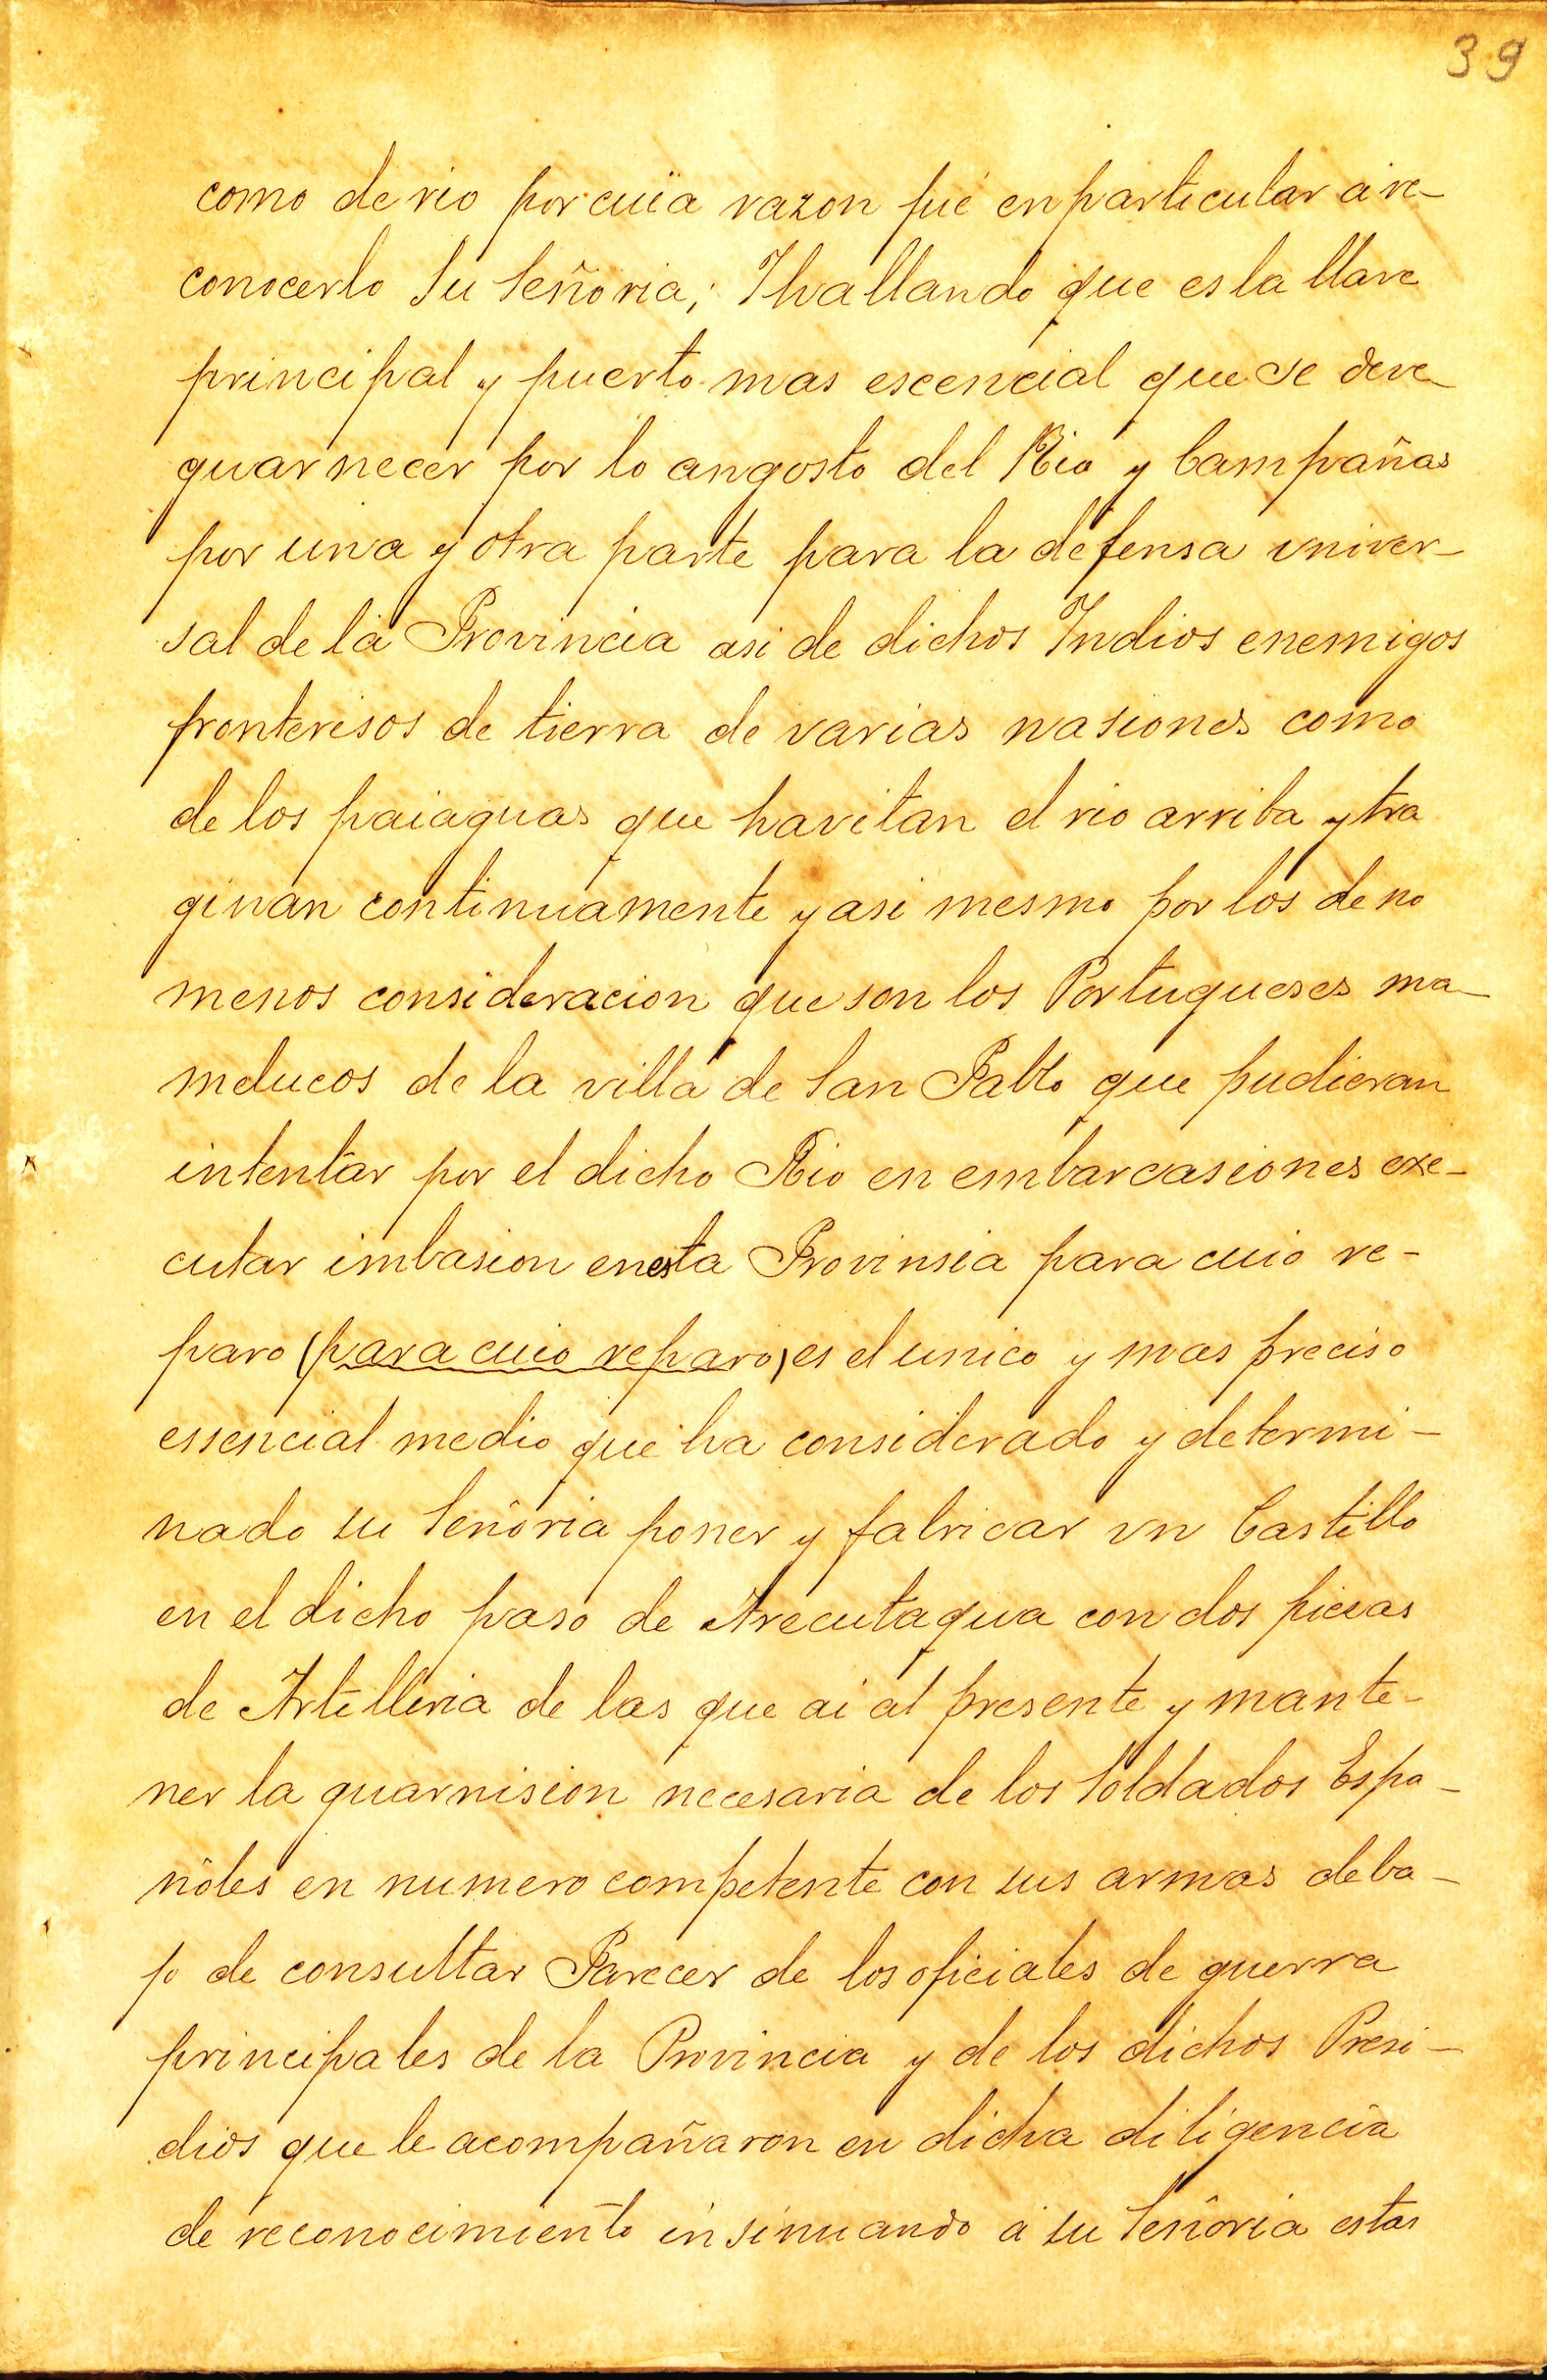 39
como de rio por cuia razon fué en particular á re-
conocerlo Su Señoria; I hallando que es la llave
principal y puerto mas escencial que se deve
guarnecer por lo angosto del Rio y Campañas
por una y otra parte para la defensa univer-
sal de la Provincia asi de dichos Indios enemigos
fronterisos de tierra de varias nasiones como
de los paiaguas que havitan el rio arriba y tra
ginan continuamente y asi mesmo por los de no
menos consideracion que son los Portugueses ma-
melucos de la villa de San Pablo que pudieran
intentar por el dicho Rio en embarcasiones exe-
cutar imbasion en esta Provinsia para cuio re-
paro (para cuio reparo) es el unico y mas preciso
essencial medio que ha considerado y determi-
nado su Señoria poner y fabricar vn Castillo
en el dicho paso de Arecutagua con dos piezas
de Artilleria de las que ai al presente y mante-
ner la guarnision necesaria de los Soldados Espa-
ñoles en numero competente con sus armas deba-
jo de consultar Parecer de los oficiales de guerra
principales de la Provincia y de los dichos Presi-
dios que le acompañaron en dicha diligencia
de reconocimiento insinuando á su Señoria estas